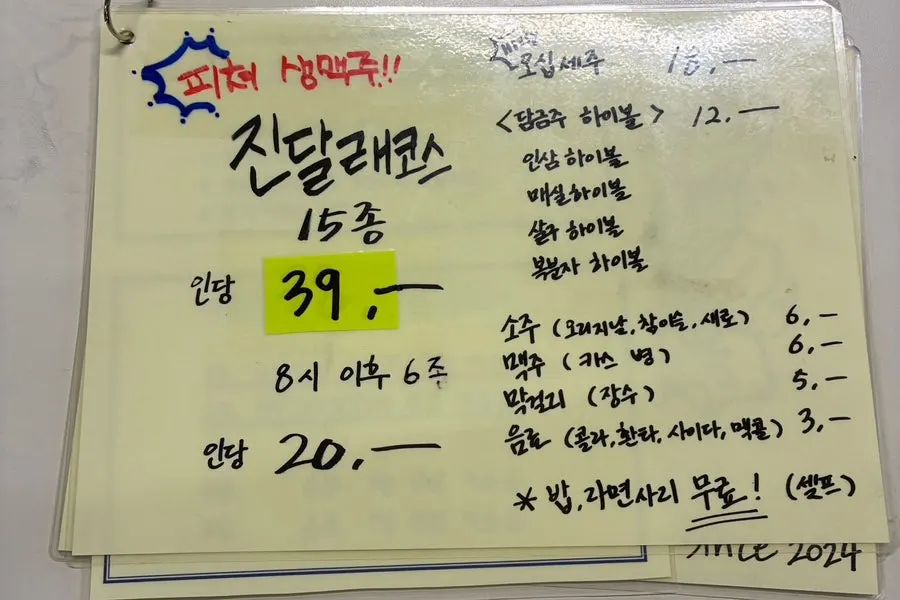 피쳐 생맥주!!
진달래코스
15종
인당 39.—
8시 이후 6종
인당 20.—
오십세주
<담금주 하이볼> 12.—
인삼 하이볼
매실하이볼
살구 하이볼
복분자 하이볼
소주 (오리지날, 참이슬, 새로) 6.—
맥주 (카스 병) 6.—
막걸리 (장수) 5.—
음료 (콜라, 환타, 사이다, 맥콜) 3.—
* 밥, 라면사리 무료! (셀프)
since 2024